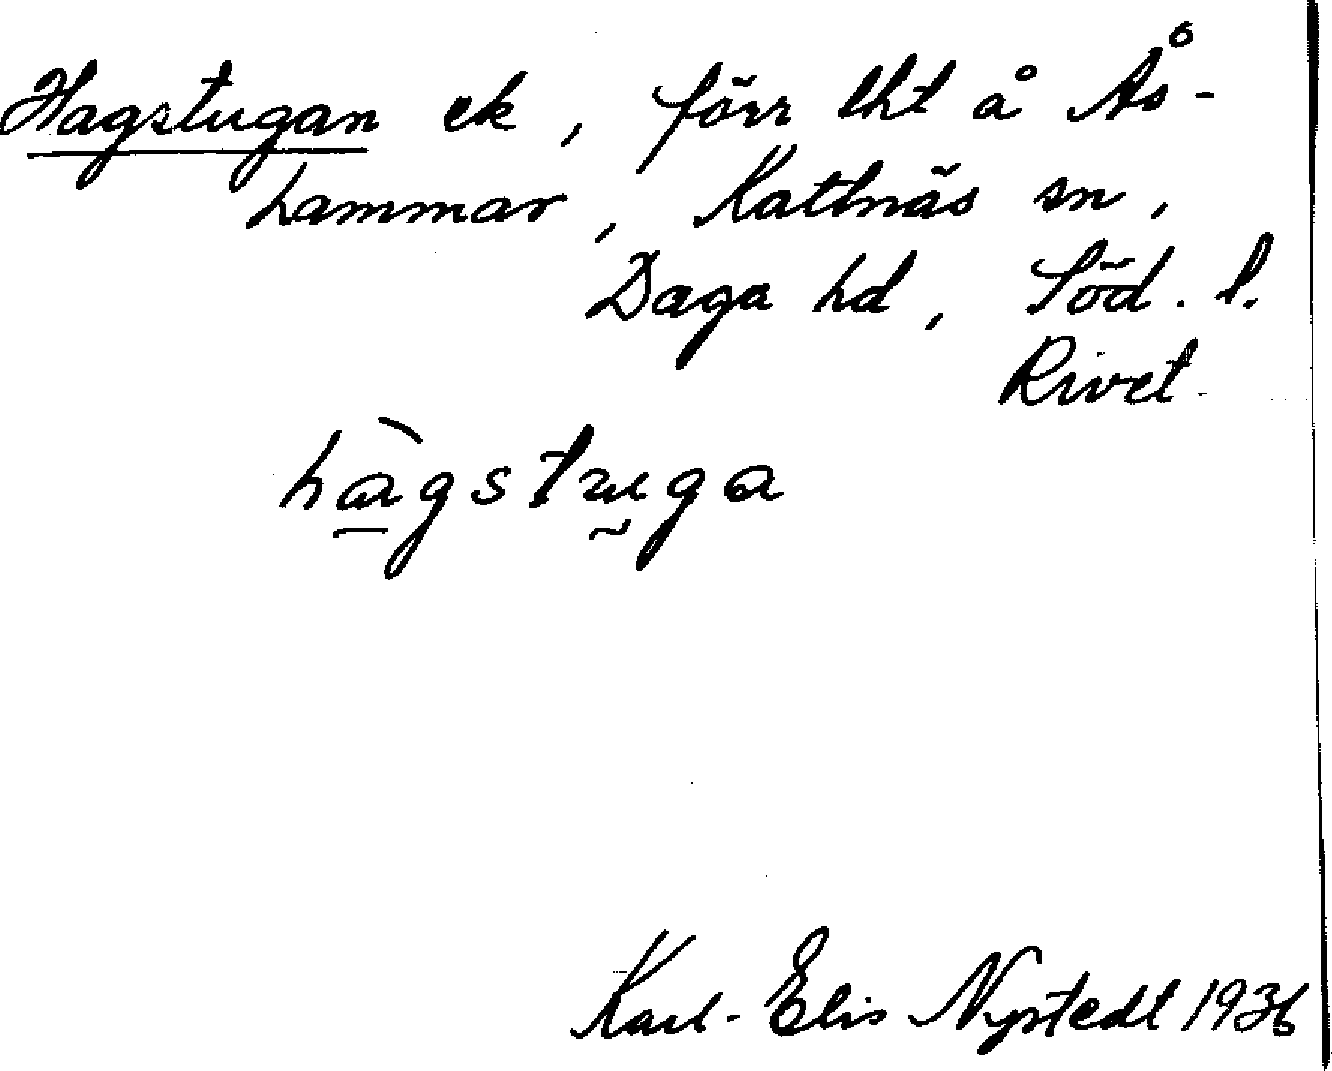 Hagstugan ek, förr lht å Ås-
hammar, Kattnäs sn,
Daga hd, Söd. l.
Rivet.
hà̱gstṵga
Karl-Elis Nystedt 1936